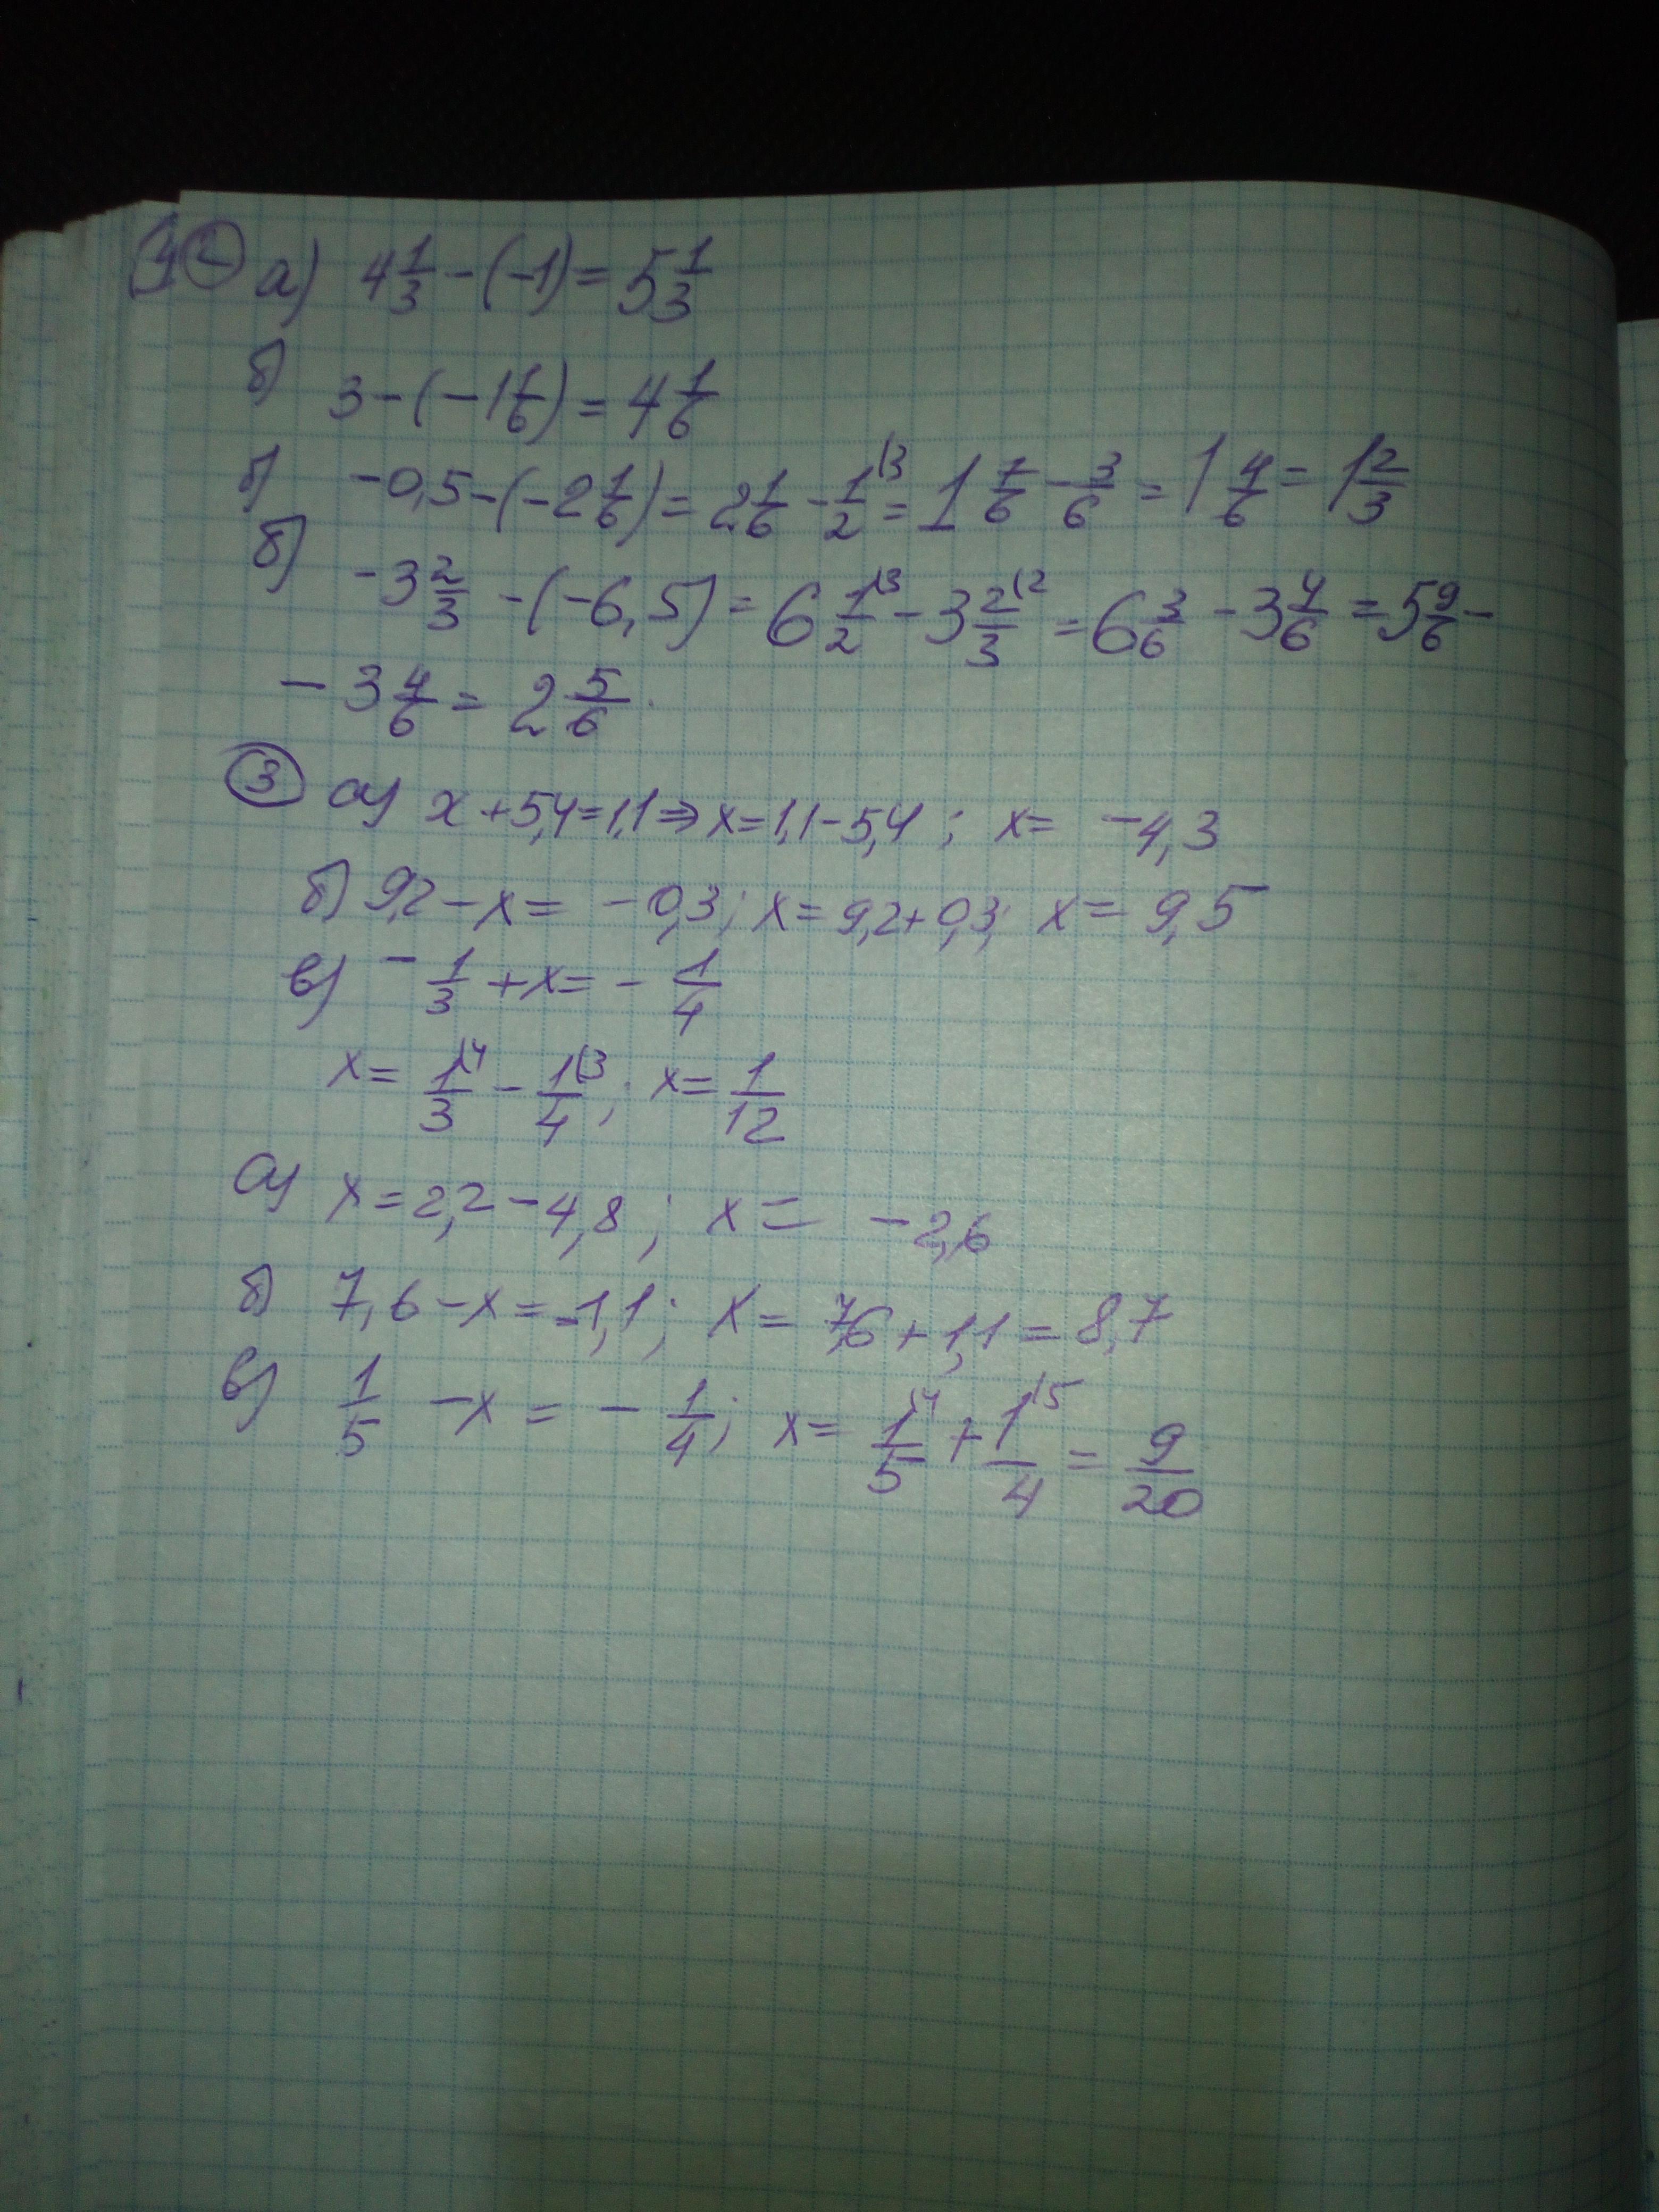 ② а) 4 1/3 - (-1) = 5 1/3
б) 3 - (-1 1/6) = 4 1/6
б) -0,5 - (-2 1/6) = 2 1/6 - 1/2 \3 = 1 7/6 - 3/6 = 1 4/6 = 1 2/3
б) -3 2/3 - (-6,5) = 6 1/2 \3 - 3 2/3 \2 = 6 3/6 - 3 4/6 = 5 9/6 -
- 3 4/6 = 2 5/6.
③ а) x + 5,4 = 1,1 ⇒ x = 1,1 - 5,4 ; x = -4,3
б) 9,2 - x = -0,3 ; x = 9,2 + 0,3; x = 9,5
в) -1/3 + x = - 1/4
x = 1/3 \4 - 1/4 \3 ; x = 1/12
а) x = 2,2 - 4,8 ; x = -2,6
б) 7,6 - x = -1,1 ; x = 7,6 + 1,1 = 8,7
в) 1/5 - x = - 1/4 ; x = 1/5 \4 + 1/4 \5 = 9/20